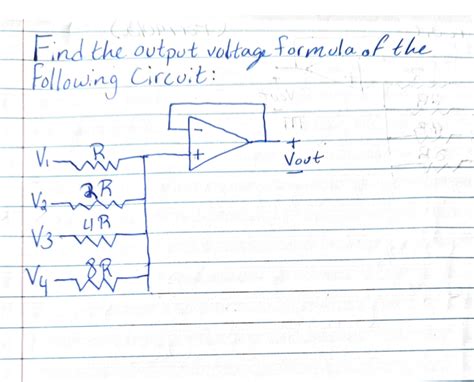 Find the output voltage formula of the
Following Circuit:
V1 R
V2 2R
V3 4R
V4 8R
-
+
+
Vout
-